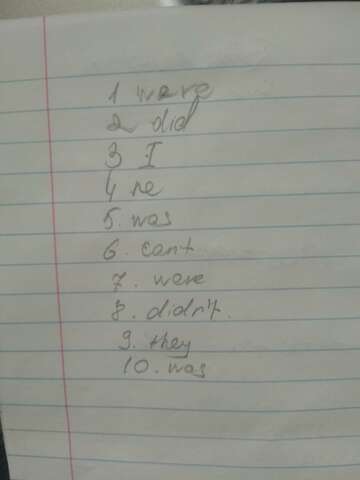 1 were
2 did
3 I
4 he
5. was
6. can't
7. were
8. didn't.
9. they
10. was